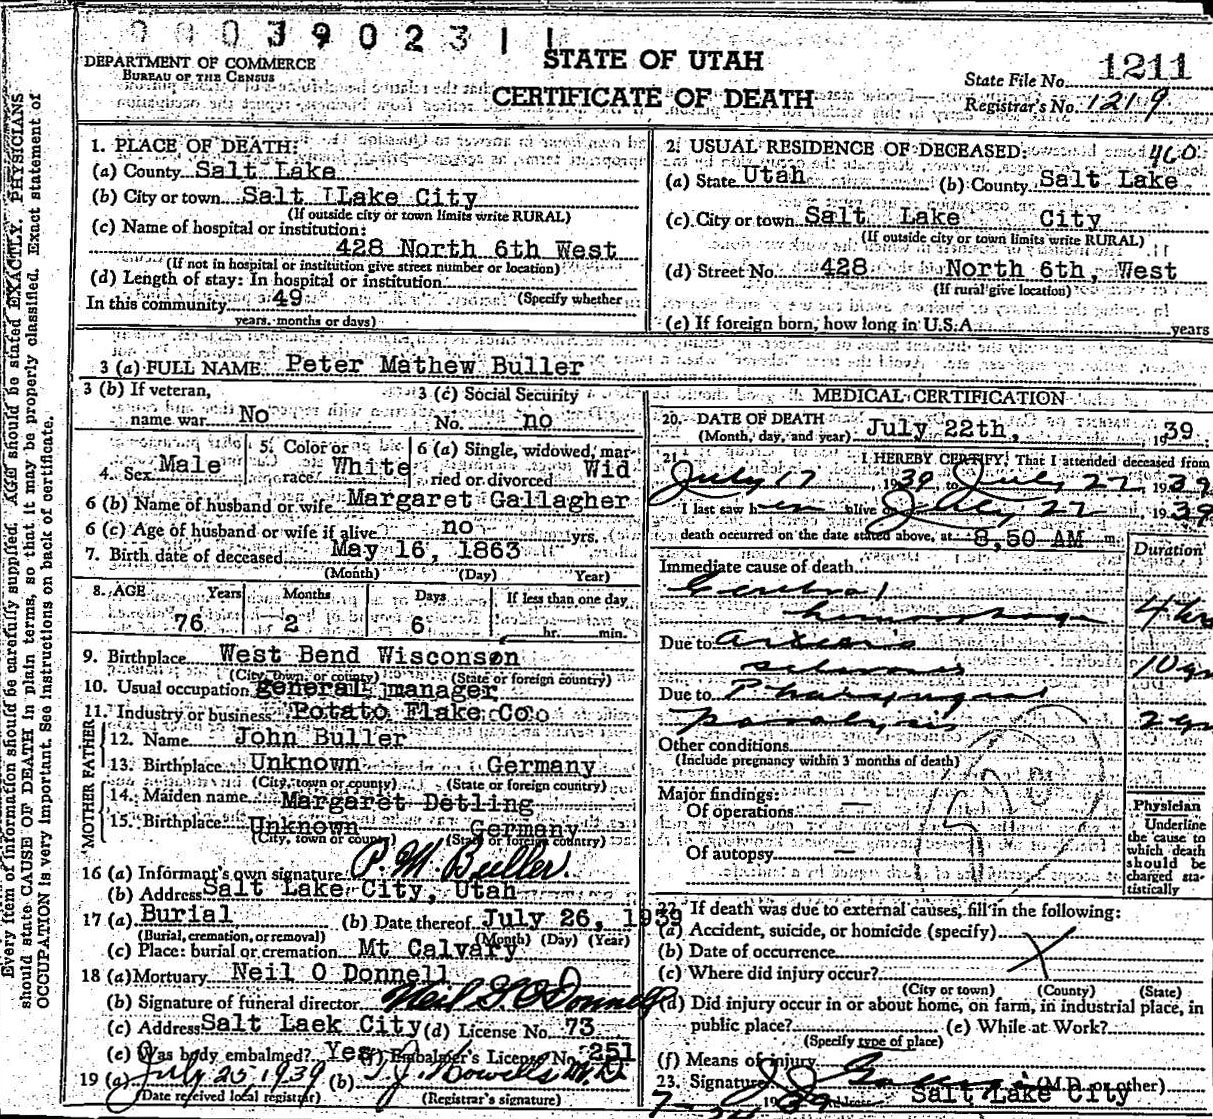 0003902311
STATE OF UTAH
CERTIFICATE OF DEATH
DEPARTMENT OF COMMERCE
BUREAU OF THE CENSUS
State File No. 1211
Registrar's No. 1219
Every item of information should be carefully supplied. AGE should be stated EXACTLY. PHYSICIANS
should state CAUSE OF DEATH in plain terms, so that it may be properly classified. Exact statement of
OCCUPATION is very important. See instructions on back of certificate.
1. PLACE OF DEATH:
(a) County Salt Lake
(b) City or town Salt lLake City
(If outside city or town limits write RURAL)
(c) Name of hospital or institution:
428 North 6th West
(If not in hospital or institution give street number or location)
(d) Length of stay: In hospital or institution
In this community 49 (Specify whether
years. months or days)
2. USUAL RESIDENCE OF DECEASED: 460
(a) State Utah (b) County Salt Lake
(c) City or town Salt Lake City
(If outside city or town limits write RURAL)
(d) Street No. 428 North 6th, West
(If rural give location)
(e) If foreign born, how long in U.S.A. years
3 (a) FULL NAME Peter Mathew Buller
3 (b) If veteran,
name war No
3 (c) Social Security
No. no
4. Sex Male
5. Color or
race White
6 (a) Single, widowed, mar-
ried or divorced Wid
6 (b) Name of husband or wife Margaret Gallagher
6 (c) Age of husband or wife if alive no yrs.
7. Birth date of deceased May 16, 1863
(Month) (Day) Year)
8. AGE Years Months Days If less than one day
76 2 6 hr. min.
9. Birthplace West Bend Wisconson
(City, town, or county) (State or foreign country)
10. Usual occupation general manager
11. Industry or business Potato Flake Co
MOTHER FATHER
12. Name John Buller
13. Birthplace Unknown Germany
(City, town or county) (State or foreign country)
14. Maiden name Margaret Detling
15. Birthplace Unknown Germany
(City, town or county) (State or foreign country)
16 (a) Informant's own signature P. M. Buller.
(b) Address Salt Lake City, Utah
17 (a) Burial (b) Date thereof July 26, 1939
(Burial, cremation, or removal) (Month) (Day) (Year)
(c) Place: burial or cremation Mt Calvary
18 (a) Mortuary Neil O Donnell
(b) Signature of funeral director Neil O'Donnell
(c) Address Salt Laek City (d) License No. 73
(e) Was body embalmed? Yes (f) Embalmer's License No. 251
19 (a) July 25, 1939 (b) T. J. Howells M.D.
(Date received local registrar) (Registrar's signature)
MEDICAL CERTIFICATION
20. DATE OF DEATH
(Month, day, and year) July 22th, 1939
21. I HEREBY CERTIFY, That I attended deceased from
July 17, 1939 to July 22 1939
I last saw h alive on July 22, 1939
death occurred on the date stated above, at 8,50 AM m.
Immediate cause of death Duration
Cerebral
hemorrhage 4 hrs
Due to arterio
sclerosis 10 yr
Due to
paralysis 2 yr
Other conditions
(Include pregnancy within 3 months of death)
Major findings:
Of operations —
Of autopsy —
Physician
Underline
the cause to
which death
should be
charged sta-
tistically
22. If death was due to external causes, fill in the following:
(a) Accident, suicide, or homicide (specify)
(b) Date of occurrence
(c) Where did injury occur?
(City or town) (County) (State)
(d) Did injury occur in or about home, on farm, in industrial place, in
public place? (e) While at Work?
(Specify type of place)
(f) Means of injury
23. Signature (M.D. or other)
Salt Lake City